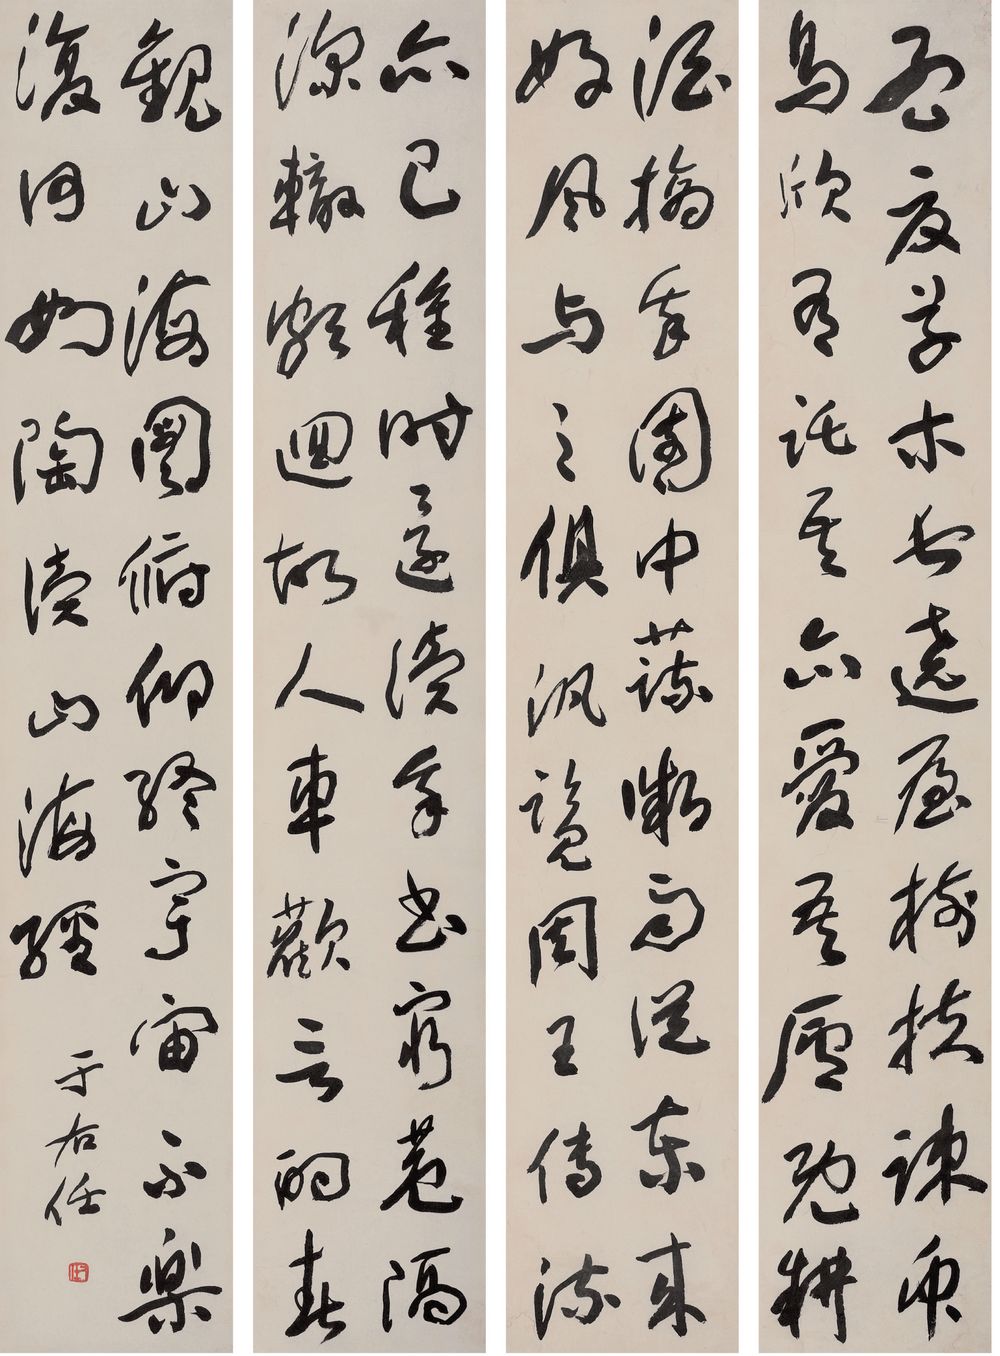 孟夏草木長遶屋樹扶疎眾
鳥欣有託吾亦愛吾廬既耕
酒摘我園中蔬微雨從東來
好風與之俱汎覽周王傳流
亦已種時還讀我書窮巷隔
深轍頗迴故人車歡言酌春
觀山海圖俯仰終宇宙不樂
復何如陶讀山海經
于右任